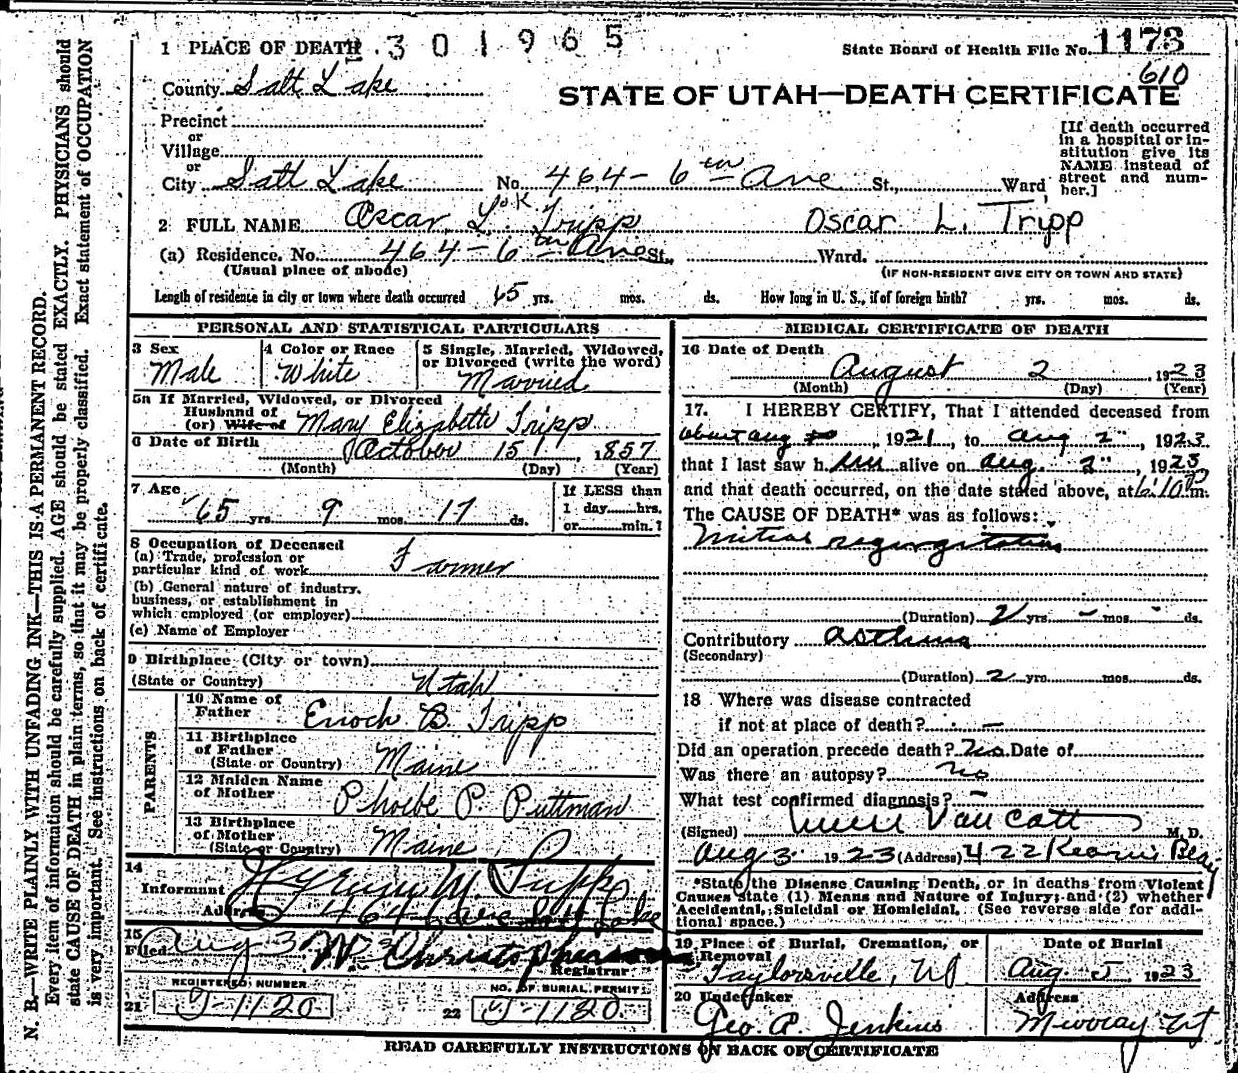 1 PLACE OF DEATH 301965 State Board of Health File No. 1173
610
County Salt Lake
STATE OF UTAH—DEATH CERTIFICATE
Precinct
or
Village
or
City Salt Lake No. 464 - 6th Ave St., Ward
[If death occurred
in a hospital or in-
stitution give its
NAME instead of
street and num-
ber.]
O.K
2 FULL NAME Oscar L. Tripp Oscar L. Tripp
(a) Residence. No. 464 - 6th Ave St., Ward.
(Usual place of abode) (IF NON-RESIDENT GIVE CITY OR TOWN AND STATE)
Length of residence in city or town where death occurred 65 yrs. mos. ds. How long in U. S., if of foreign birth? yrs. mos. ds.
PERSONAL AND STATISTICAL PARTICULARS
3 Sex
Male
4 Color or Race
White
5 Single, Married, Widowed,
or Divorced (write the word)
Married
5a If Married, Widowed, or Divorced
Husband of
(or) Wife of Mary Elizabeth Tripp
6 Date of Birth
October 15 1, 1857
(Month) (Day) (Year)
7 Age
65 yrs. 9 mos. 17 ds.
If LESS than
1 day......hrs.
or......min.?
8 Occupation of Deceased
(a) Trade, profession or
particular kind of work Farmer
(b) General nature of industry,
business, or establishment in
which employed (or employer)
(c) Name of Employer
9 Birthplace (City or town)
(State or Country) Utah
PARENTS
10 Name of
Father Enoch B. Tripp
11 Birthplace
of Father
(State or Country) Maine
12 Maiden Name
of Mother Phoebe P. Puttman
13 Birthplace
of Mother
(State or Country) Maine
14
Informant Hyrum M Tripp
Address 464-6 Ave Salt Lake
15
Filed Aug 3 1923 Christopherson
Registrar
REGISTERED NUMBER
21 J-1120
NO. OF BURIAL PERMIT
22 J-1120.
MEDICAL CERTIFICATE OF DEATH
16 Date of Death
August 2 1923
(Month) (Day) (Year)
17. I HEREBY CERTIFY, That I attended deceased from
about aug, 1921, to aug 2", 1923
that I last saw him alive on aug. 2", 1923
and that death occurred, on the date stated above, at 6:10 P m.
The CAUSE OF DEATH* was as follows:
Mitral regurgitation
(Duration) 2 yrs. - mos. - ds.
Contributory asthma
(Secondary)
(Duration) 2 yrs. mos. ds.
18 Where was disease contracted
if not at place of death? —
Did an operation precede death? No Date of
Was there an autopsy? no
What test confirmed diagnosis? —
(Signed) Van Cott M. D.
Aug 3 1923 (Address) 422 Kearns Bldg
*State the Disease Causing Death, or in deaths from Violent
Causes state (1) Means and Nature of Injury; and (2) whether
Accidental, Suicidal or Homicidal. (See reverse side for addi-
tional space.)
19 Place of Burial, Cremation, or
Removal
Taylorsville, Ut
Date of Burial
Aug. 5 1923
20 Undertaker
Geo. A. Jenkins
Address
Murray Ut
READ CAREFULLY INSTRUCTIONS ON BACK OF CERTIFICATE
N. B.—WRITE PLAINLY WITH UNFADING INK—THIS IS A PERMANENT RECORD.
Every item of information should be carefully supplied. AGE should be stated EXACTLY. PHYSICIANS should
state CAUSE OF DEATH in plain terms, so that it may be properly classified. Exact statement of OCCUPATION
is very important. See instructions on back of certificate.